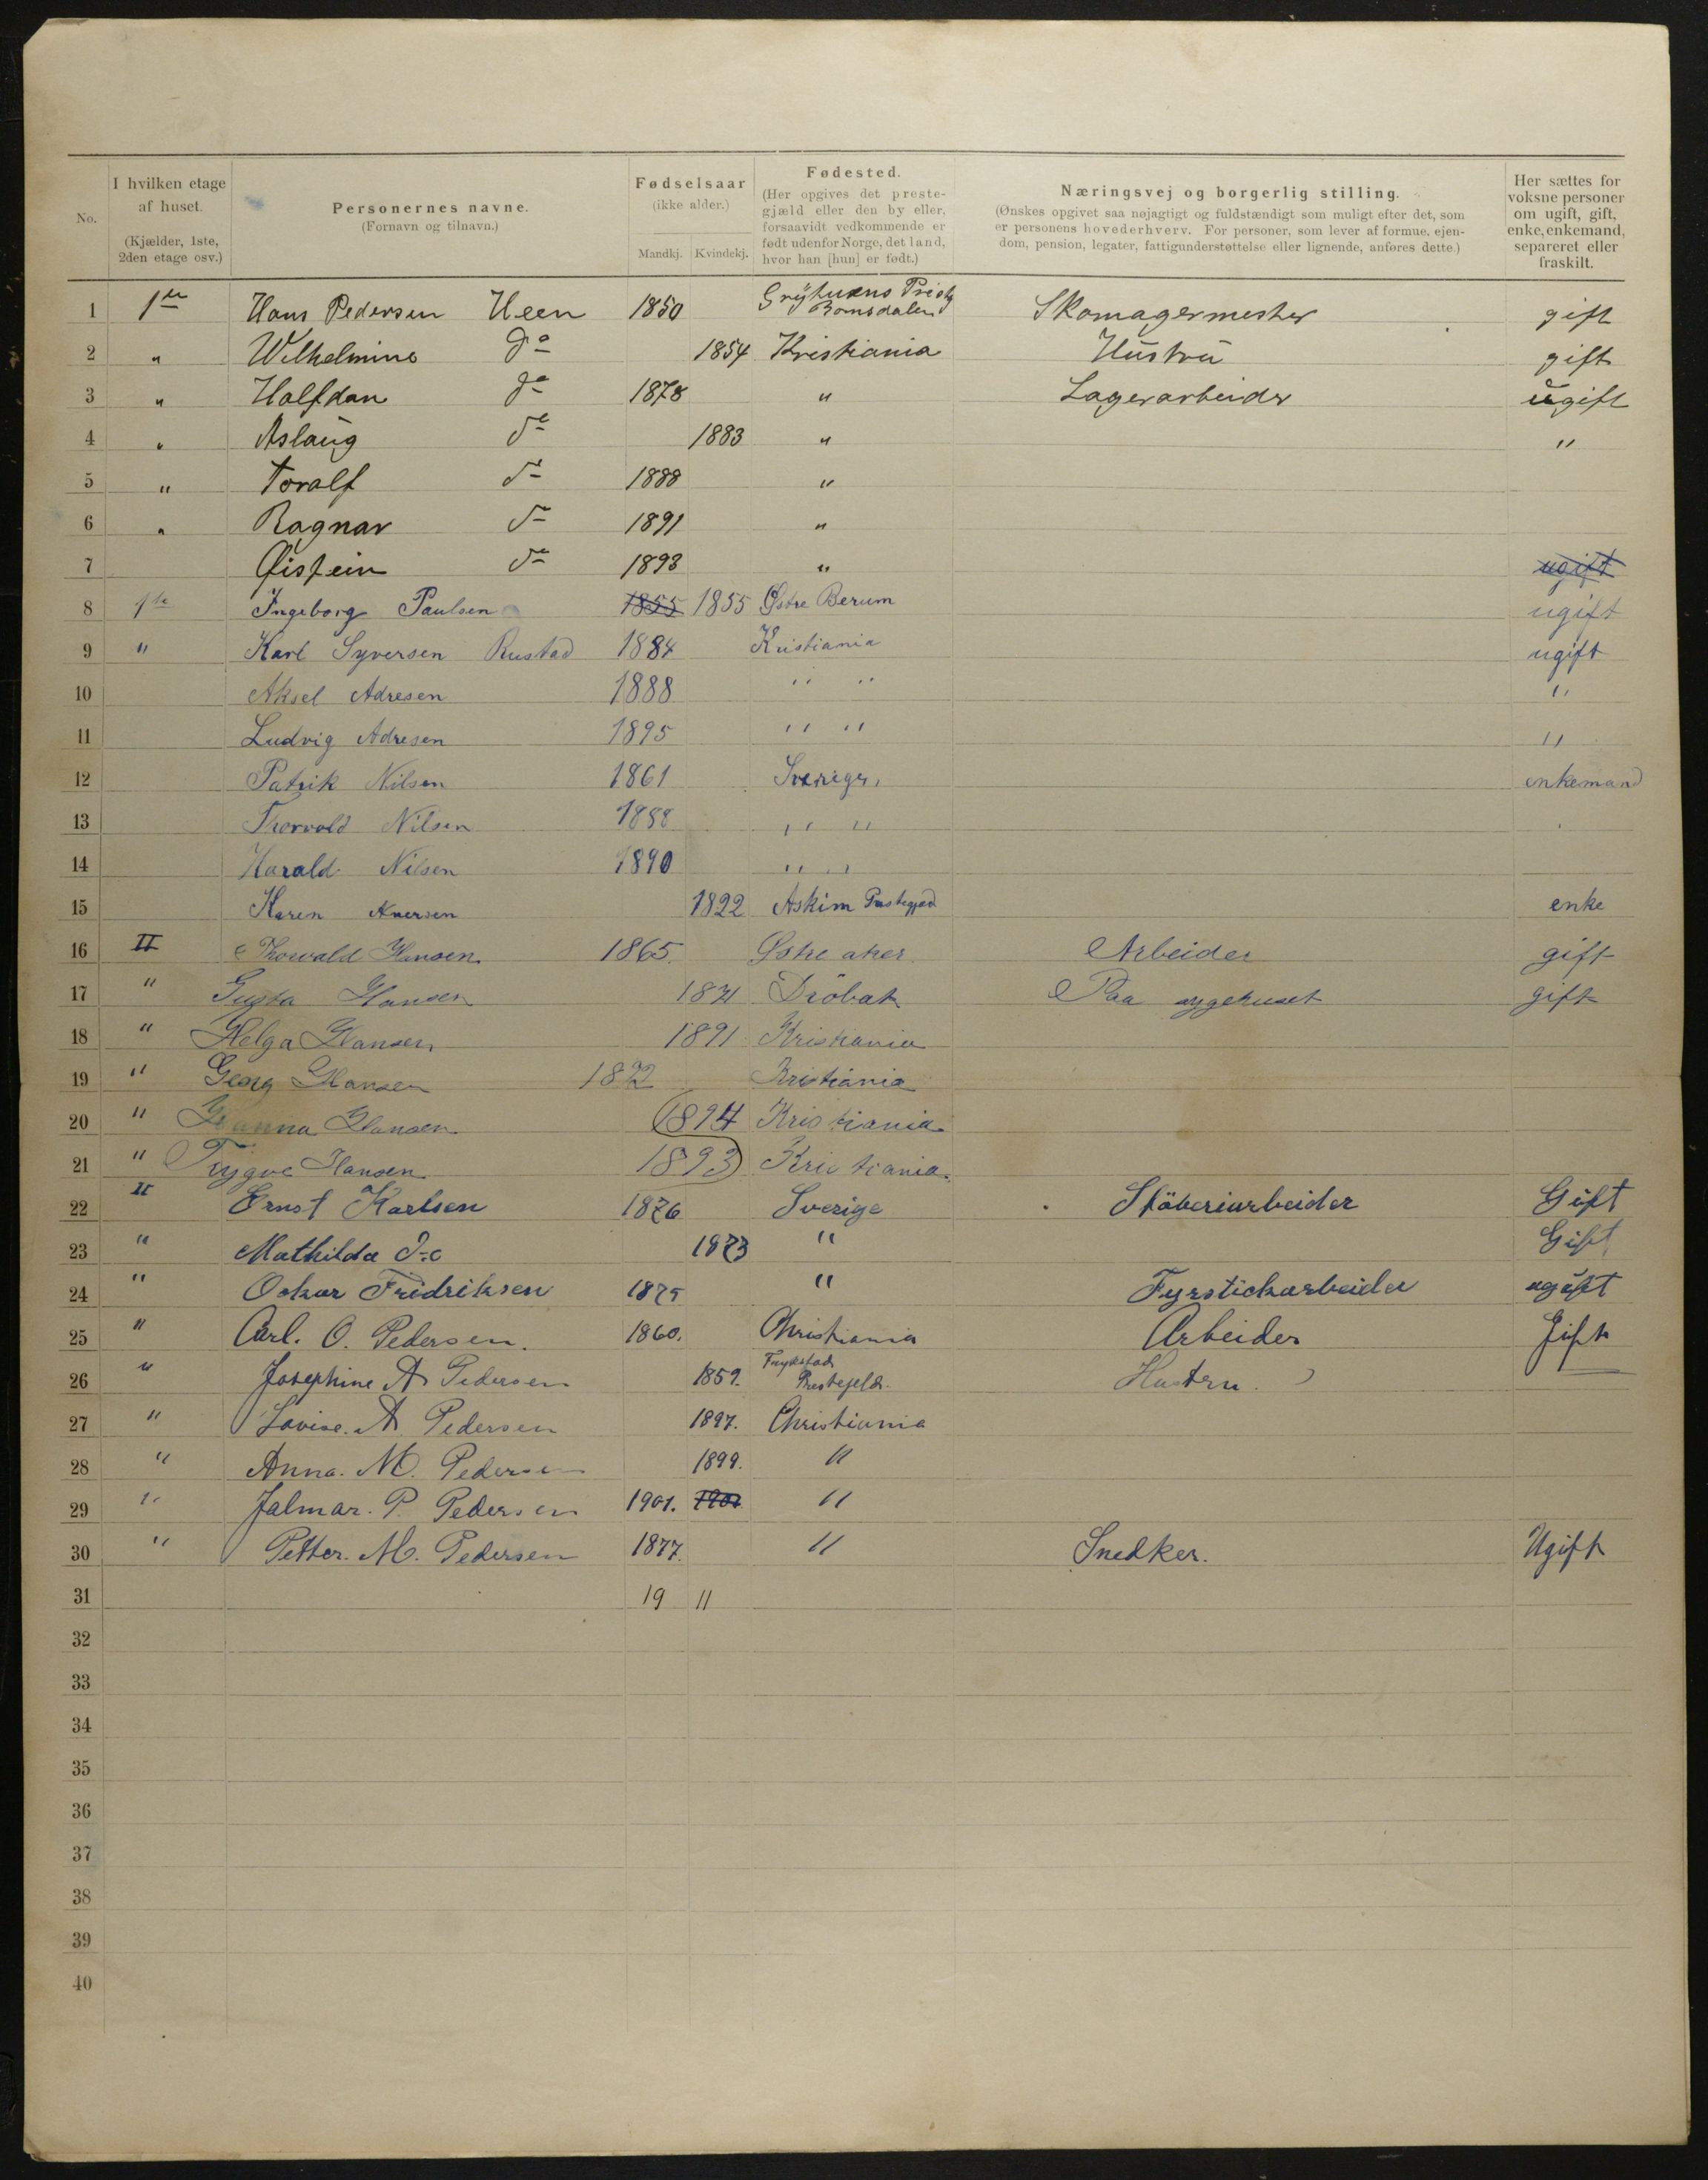 No.
I hvilken etage af huset. (Kjælder, 1ste, 2den etage osv.)
Personernes navne. (Fornavn og tilnavn.)
Fødselsaar (ikke alder.)
Mandkj. Kvindekj.
Fødested. (Her opgives det prestegjæld eller den by eller, forsaavidt vedkommende er født udenfor Norge, det land, hvor han [hun] er født.)
Næringsvej og borgerlig stilling. (Ønskes opgivet saa nøjagtigt og fuldstændigt som muligt efter det, som er personens hovederhverv. For personer, som lever af formue, ejendom, pension, legater, fattigunderstøttelse eller lignende, anføres dette.)
Her sættes for voksne personer om ugift, gift, enke, enkemand, separeret eller fraskilt.
1 1ste Hans Pedersen Heen 1850 Romsdalen Skomagermester gift
2 " Wilhelmine do 1854 Kristiania Hustru gift
3 " Halfdan do 1878 " Lagerarbeider ugift
4 " Aslaug do 1883 " "
5 " Toralf do 1888 "
6 " Ragnar do 1891 "
7 Øistein do 1893 " ugift
8 1ste Ingeborg Paulsen 1855 1855 Østre Berum ugift
9 " Karl Syversen Rustad 1884 Kristiania ugift
10 Aksel Adresen 1888 " " "
11 Ludvig Adresen 1895 " " "
12 Patrik Nilsen 1861 Sverige, enkemand
13 Thorvald Nilsen 1888 " "
14 Harald Nilsen 1890 " "
15 Karen 1822 Askim enke
16 II Thorvald Hansen 1865. Østre aker Arbeider gift
17 " Gusta Hansen 1871 Dröbak Paa sygehuset gift
18 " Helga Hansen 1891 Kristiania
19 " Georg Hansen 1892 Kristiania
20 " Hanna Hansen 1894 Kristiania
21 " Trygve Hansen 1893 Kristiania.
22 II Ernst Karlsen 1876 Sverige Stöberiarbeider Gift
23 " Mathilda d-o 1873 " Gift
24 " Oskar Fridriksen 1875 " Fyrstickarbeider ugift
25 " Carl. O. Pedersen. 1860. Christiania Arbeider Gift
26 " Josephine A Pedersen 1859. Hustru.
27 " Lovise. A. Pedersen 1897. Christiania
28 " Anna. M. Pedersen 1899. "
29 " Jalmar. P. Pedersen 1901. 1901 "
30 " Petter. M. Pedersen 1877. " Snedker. Ugift
31 19 11
32
33
34
35
36
37
38
39
40